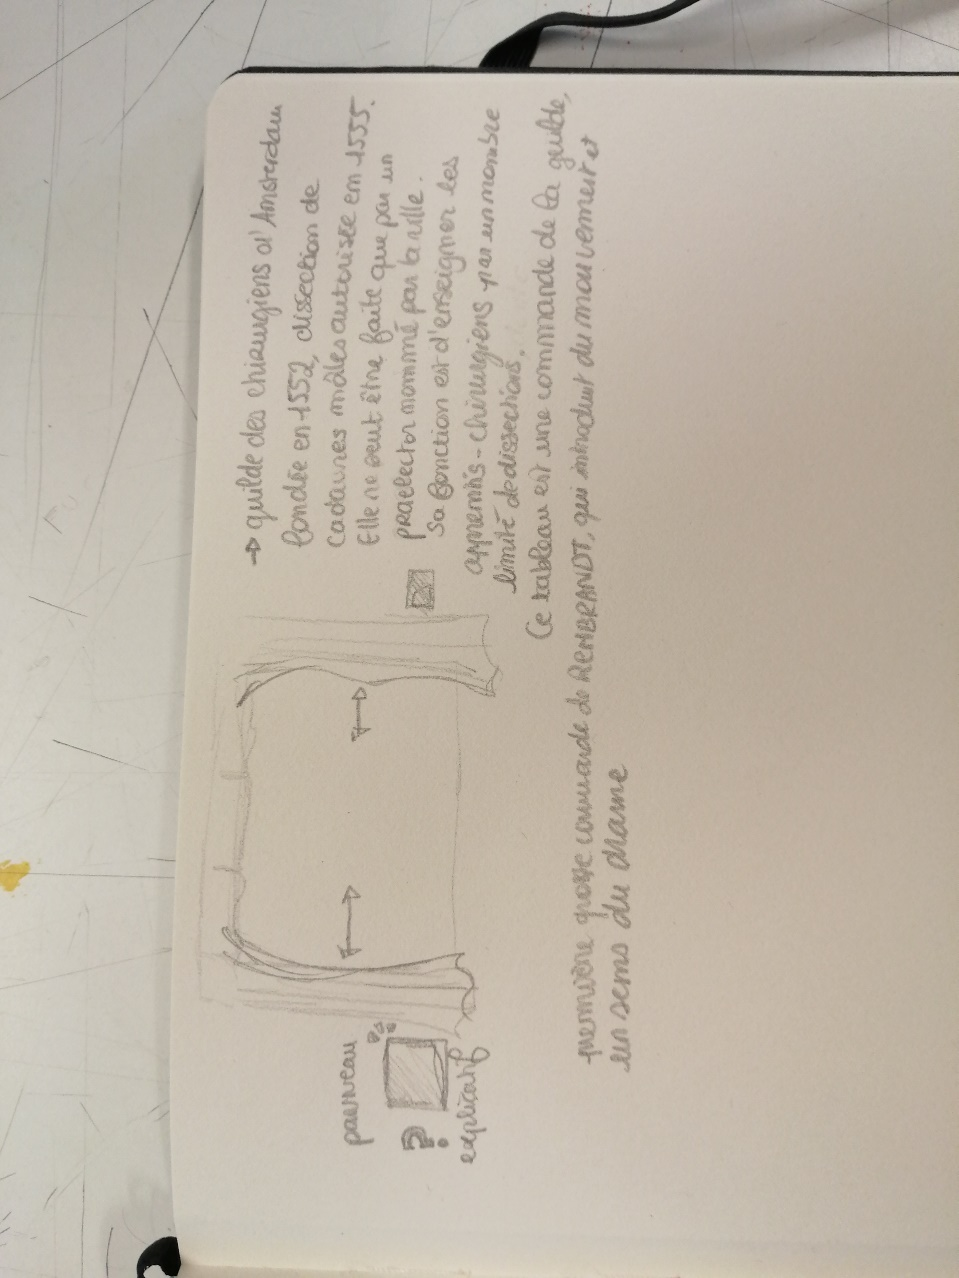 → guilde des chirurgiens d'Amsterdam
fondée en 1552, dissection de
cadavres mâles autorisée en 1555.
Elle ne peut être faite que par un
praelector nommé par la ville.
Sa fonction est d'enseigner les
apprentis-chirurgiens par un nombre
limité de dissections.
Ce tableau est une commande de la guilde,
première grosse commande de REMBRANDT, qui introduit du mouvement et
un sens du drame
panneau
?
explicatif